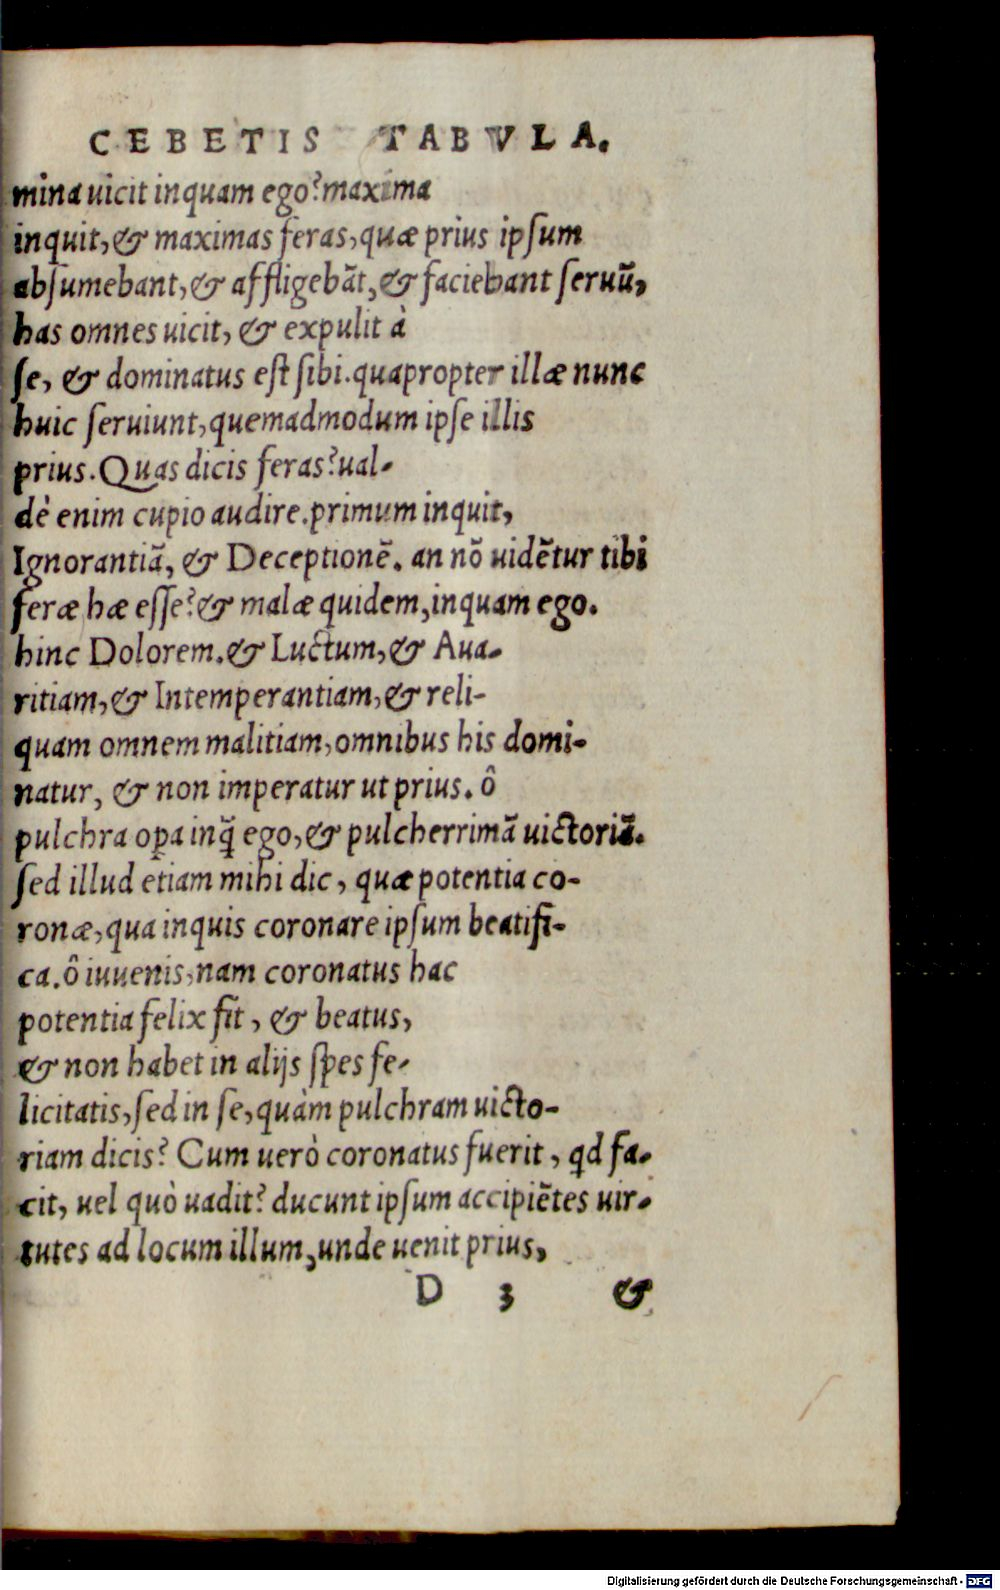 CEBETIS TABVLA.
mina uicit inquam ego? maxima
inquit, & maximas feras, quæ prius ipſum
abſumebant, & affligebãt, & faciebant ſeruũ,
has omnes uicit, & expulit à
ſe, & dominatus eſt ſibi. quapropter illæ nunc
huic ſeruiunt, quemadmodum ipſe illis
prius. Quas dicis feras? ual-
dè enim cupio audire. primum inquit,
Ignorantiã, & Deceptionẽ. an nõ uidẽtur tibi
feræ hæ eſſe? & malæ quidem, inquam ego.
hinc Dolorem. & Luctum, & Aua-
ritiam, & Intemperantiam, & reli-
quam omnem malitiam, omnibus his domi-
natur, & non imperatur ut prius. ô
pulchra oꝑa inq̃ ego, & pulcherrimã uictoriã.
ſed illud etiam mihi dic, quæ potentia co-
ronæ, qua inquis coronare ipſum beatifi-
ca. ô iuuenis, nam coronatus hac
potentia felix fit, & beatus,
& non habet in alijs ſpes fe-
licitatis, ſed in ſe, quàm pulchram uicto-
riam dicis? Cum uerò coronatus fuerit, qd fa-
cit, uel quò uadit? ducunt ipſum accipiẽtes uir-
tutes ad locum illum, unde uenit prius,
D 3 &
Digitalisierung gefördert durch die Deutsche Forschungsgemeinschaft - DFG